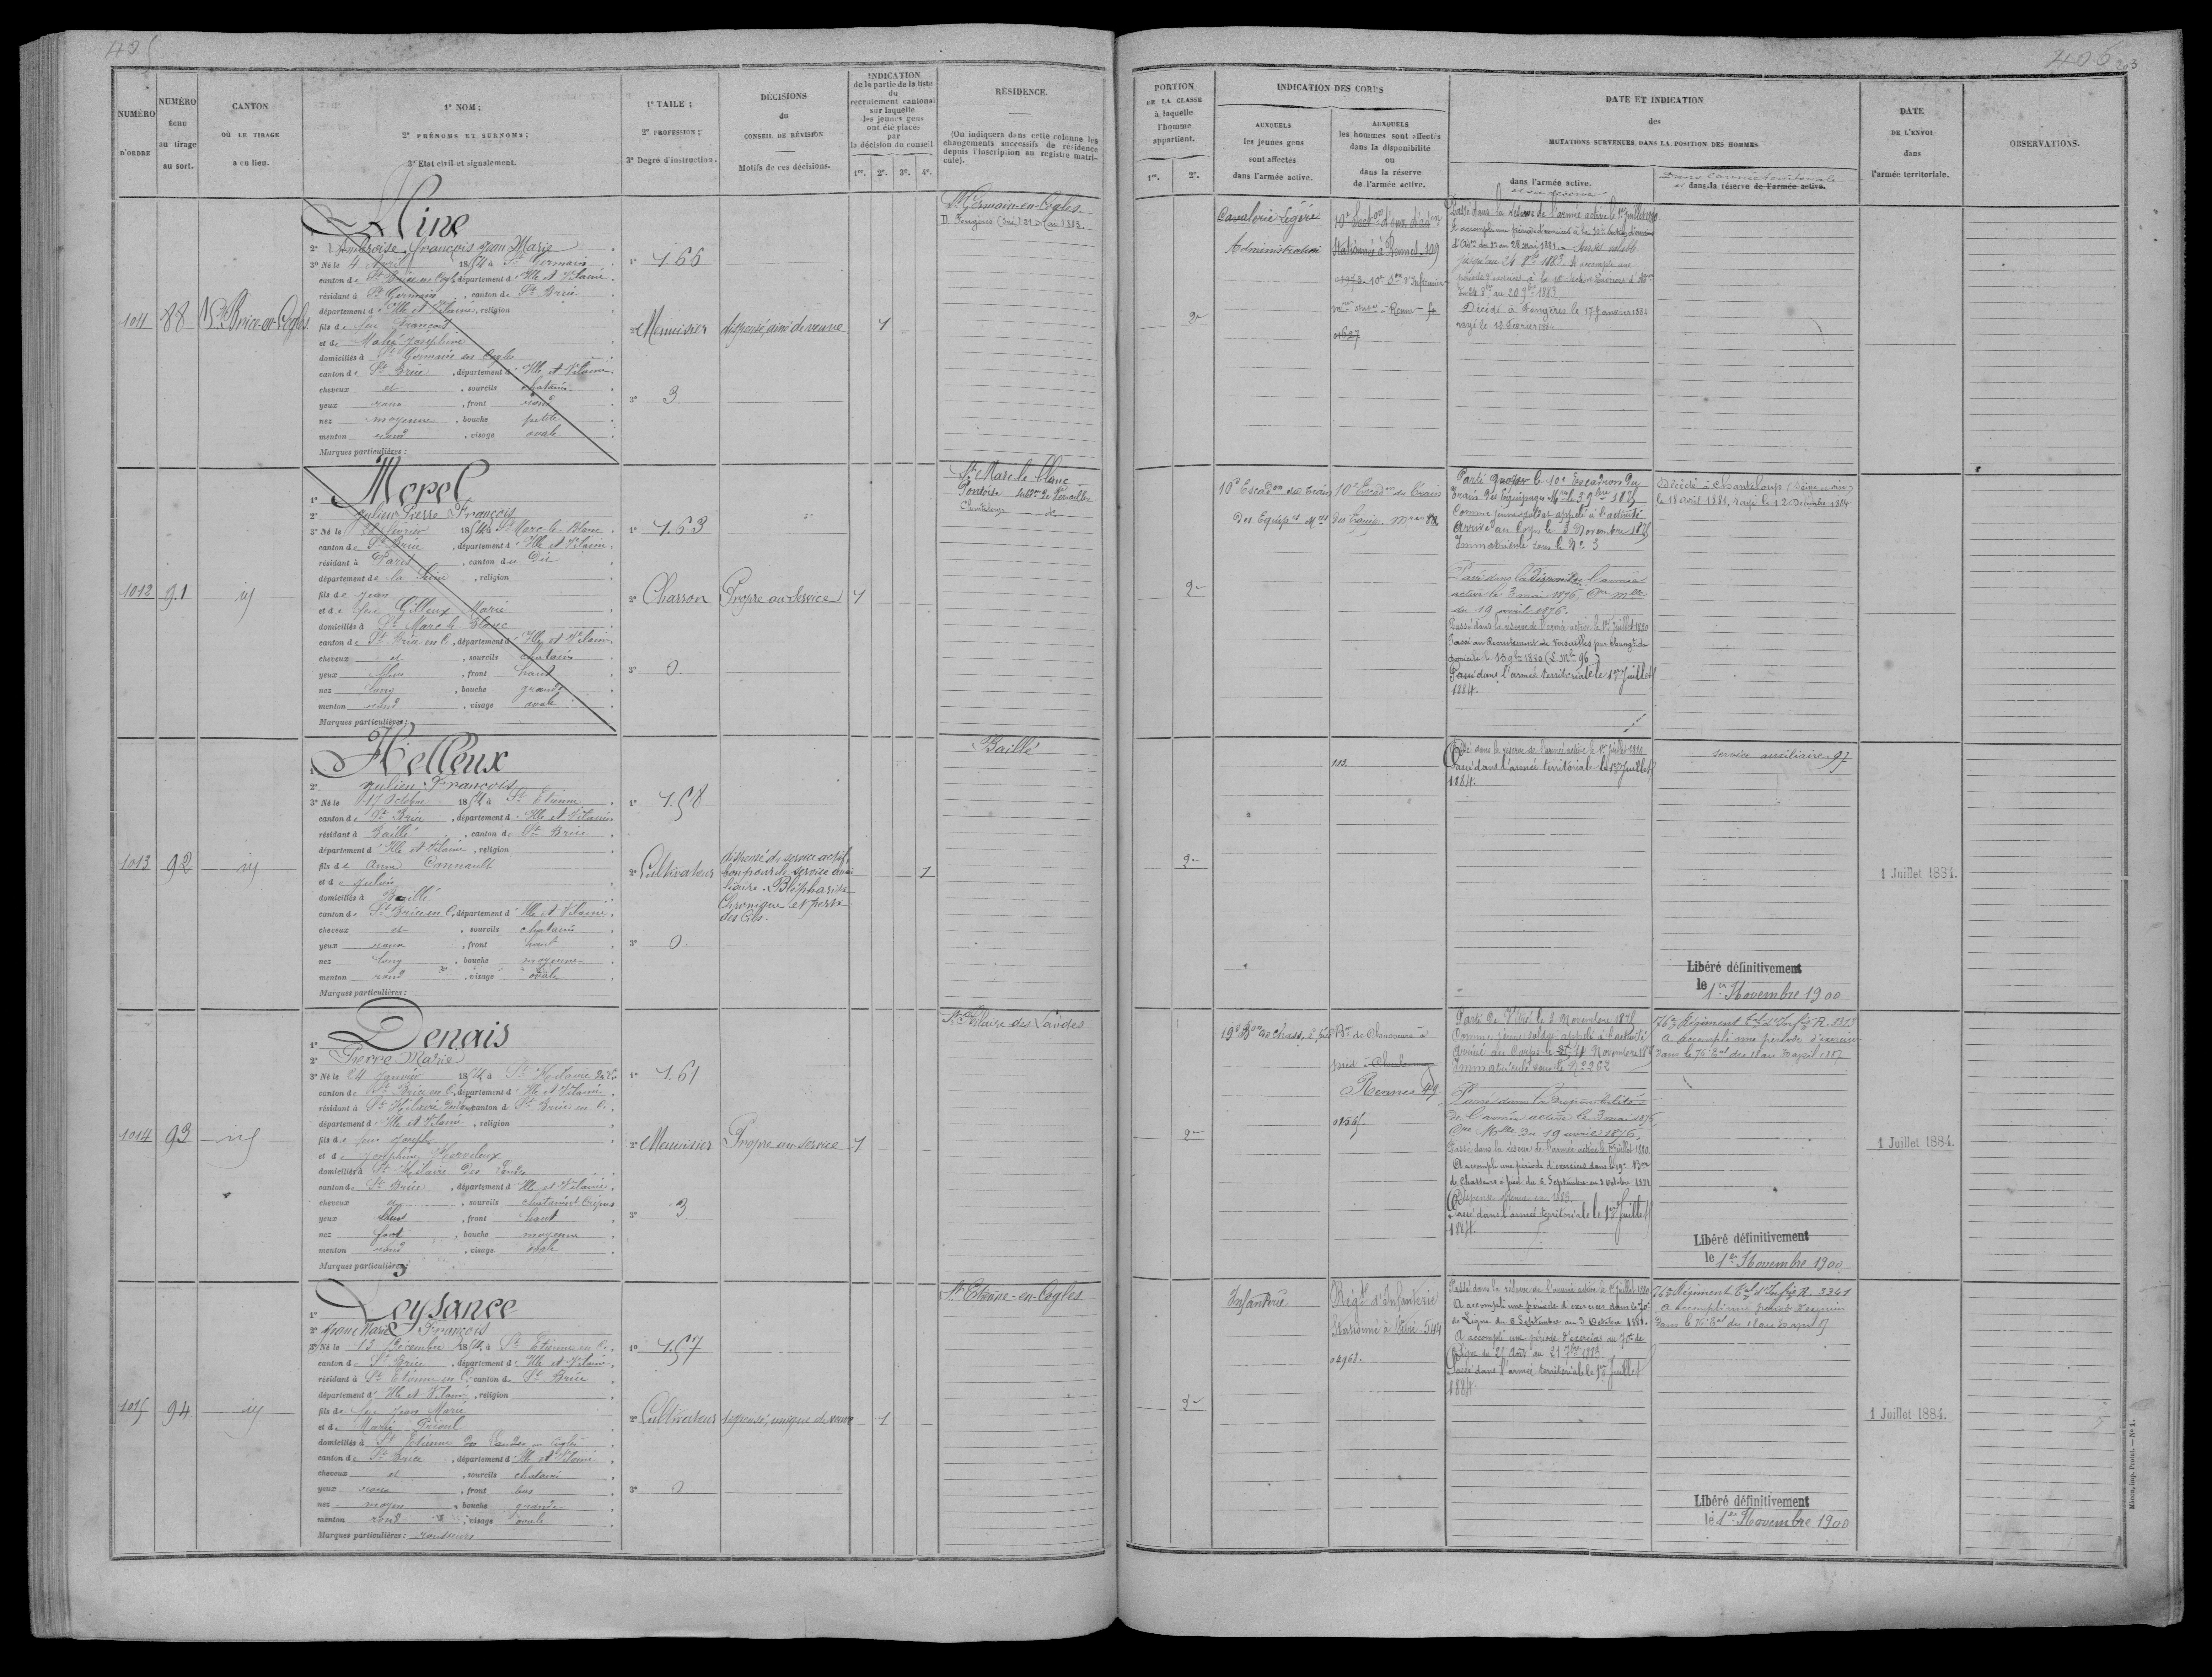 405
NUMÉRO
D'ORDRE
NUMÉRO
échu
au tirage
au sort.
CANTON
OÙ LE TIRAGE
a eu lieu.
1° NOM;
2° PRÉNOMS ET SURNOMS;
3° Etat civil et signalement.
1° TAILE;
2° PROFESSION;
3° Degré d'instruction.
DÉCISIONS
du
CONSEIL DE RÉVISION
Motifs de ces décisions.
INDICATION
de la partie de la liste
du
recrutement cantonal
sur laquelle
les jeunes gens
ont été placés
par
la décision du conseil
1re. 2e. 3e. 4e.
RÉSIDENCE.
(On indiquera dans cette colonne les
changements successifs de résidence
depuis l'inscription au registre matri-
cule).
1011
88
St Brice-en-Cogles
Mine
2° Ambroise, François Jean Marie
3° Né le 4 Avril 1854 à St Germain
canton de St Brice en Cogles, département d'Ille et Vilaine
résidant à St Germain, canton de St Brice
département d'Ille et Vilaine, religion
fils de feu François
et de Josephine
domiciliés à St Germain en Cogles
canton de St Brice, département d'Ille et Vilaine
cheveux et, sourcils chatains
yeux roux, front rond
nez moyenne, bouche petite
menton rond, visage ovale
Marques particulières:
1° 1.66
2° Menuisier
3° 3
dispensé, ainé de veuve
1
St Germain-en-Cogles
D. Fougères 21 Mai 1883.
1012
91
id
Morel
2° Julien Pierre François
3° Né le février 1854 à St Marc-le-Blanc
canton de St Brice, département d'Ille et Vilaine
résidant à Paris, canton du Die
département de la Seine, religion
fils de Jean
et de feu Gilleux Marie
domiciliés à St Marc le Blanc
canton de St Brice en C, département d'Ille et Vilaine
cheveux et, sourcils chatains
yeux bleus, front haut
nez long, bouche grande
menton rond, visage ovale
Marques particulières:
1° 1.63
2° Charron
3° 0.
Propre au Service
1
St Marc le Blanc
Pontoise
Chanteloup
1013
92
id
Helleux
2° Julien François
3° Né le 17 Octobre 1854 à St Etienne
canton de St Brice, département d'Ille et Vilaine
résidant à Baillé, canton de St Brice
département d'Ille et Vilaine, religion
fils de Anne Connault
et de Julien
domiciliés à Baillé
canton de St Brice en C, département d'Ille et Vilaine
cheveux et, sourcils chatains
yeux roux, front haut
nez long, bouche moyenne
menton rond, visage ovale
Marques particulières:
1° 1.58
2° Cultivateur
3° 0.
dispensé du service actif,
bon pour le service auxi
liaire. Blépharite
Chronique et perte
des Cils.
1
Baillé
1014
93
id
Denais
2° Pierre Marie
3° Né le 24 Janvier 1854 à St Hilaire
canton de St Brice en C, département d'Ille et Vilaine
résidant à St Hilaire des Landes, canton de St Brice en C.
département d'Ille et Vilaine, religion
fils de feu Joseph
et de Joséphine
domiciliés à St Hilaire des Landes
canton de St Brice, département d'Ille et Vilaine
cheveux et, sourcils chatains et Crépus
yeux bleus, front haut
nez fort, bouche moyenne
menton rond, visage ovale
Marques particulières:
1° 1.61
2° Menuisier
3° 3
Propre au service
1
St Hilaire des Landes
1015
94
id
Leysance
2° Jean Marie François
3° Né le 13 Décembre 1854, à St Etienne en C.
canton de St Brice, département d'Ille et Vilaine
résidant à St Etienne en C. canton de St Brice
département d'Ille et Vilaine, religion
fils de feu Jean Marie
et de Marie
domiciliés à St Etienne en Cogles
canton de St Brice, département d'Ille et Vilaine
cheveux et, sourcils chatains
yeux roux, front bas
nez moyen, bouche grande
menton rond, visage ovale
Marques particulières: rousseurs
1° 1.57
2° Cultivateur
3° 0
dispensé, unique de veuve
1
St Etienne-en-Cogles
406
203
PORTION
DE LA CLASSE
à laquelle
l'homme
appartient.
1re. 2e.
INDICATION DES CORPS
AUXQUELS
les jeunes gens
sont affectés
dans l'armée active.
AUXQUELS
les hommes sont affectés
dans la disponibilité
ou
dans la réserve
de l'armée active.
DATE ET INDICATION
des
MUTATIONS SURVENUES DANS LA POSITION DES HOMMES
dans l'armée active.
et sa réserve
Dans l'armée territoriale
et dans la réserve de l'armée active.
DATE
DE L'ENVOI
dans
l'armée territoriale.
OBSERVATIONS.
2e
Cavalerie Légère
Administration
Stationnée à Rennes 109
Passé dans la réserve de l'armée active le 1er Juillet 1880
Décédé à Fougères le 17 Janvier 1884
rayé le 18 Février 1884
2e
10e Escadon du Train
Des Equipes Mres
10e Escadon du Train
des Equip. Mres
Parti pour le 10e Escadron du
Train des Equipages Mres le 3 9bre 1875
Comme jeune soldat appelé à l'activité
Arrivé au Corps le 3 Novembre 1875
Immatriculé sous le No 3
Passé dans la disponibilité de l'armée
active le 3 mai 1876. Con Mlle
du 19 avril 1876.
Passé dans la réserve de l'armée active le 1er Juillet 1880
Passé au Recrutement de Versailles par changt de
domicile le 15 9bre 1880
Passé dans l'armée territoriale le 1er Juillet
1884.
Décédé à Chanteloup (Seine et Oise)
le 18 avril 1884, rayé le 12 Décembre 1884
2e
Passé dans la réserve de l'armée active le 1er Juillet 1880
Passé dans l'armée territoriale le 1er Juillet
1884.
service auxiliaire. 97
Libéré définitivement
le 1er Novembre 1900
1 Juillet 1884.
2e
19e Bon de Chass. à pied
Bon de Chasseurs à
pied à Cherbourg
Rennes 49
0156
Parti de Vitré le 2 Novembre 1875
Comme jeune soldat appelé à l'activité
Arrivé au Corps le 4 Novembre 1875
Immatriculé sous le No 262
Passé dans la disponibilité
de l'armée active le 3 mai 1876,
Con Mlle du 19 avril 1876,
Passé dans la réserve de l'armée active le 1er Juillet 1880
A accompli une période d'exercices dans le 19e Bon
de Chasseurs à pied du 5 Septembre au 3 Octobre 1881
Dispense obtenue en 1883
Passé dans l'armée territoriale le 1er Juillet
1884.
76e Régiment tal d'Infie R. 2313
A accompli une période d'exercices
dans le 76e tal du 18 au 30 avril 1887
Libéré définitivement
le 1er Novembre 1900
1 Juillet 1884.
2e
Infanterie
Régt d'Infanterie
Stationné à Vitré - 544
02961.
Passé dans la réserve de l'armée active le 1er Juillet 1880
A accompli une période d'exercices dans le 70e
de Ligne du 6 Septembre au 3 Octobre 1881.
A accompli une période d'exercices au 70e de
Ligne du 25 Août au 21 7bre 1883
Passé dans l'armée territoriale le 1er Juillet
1884
76e Régiment tal d'Infie R. 3341
A accompli une période d'exercices
dans le 76e tal du 18 au 30 avril 87
Libéré définitivement
le 1er Novembre 1900
1 Juillet 1884.
Mâcon, imp. Protat. — N° 1.